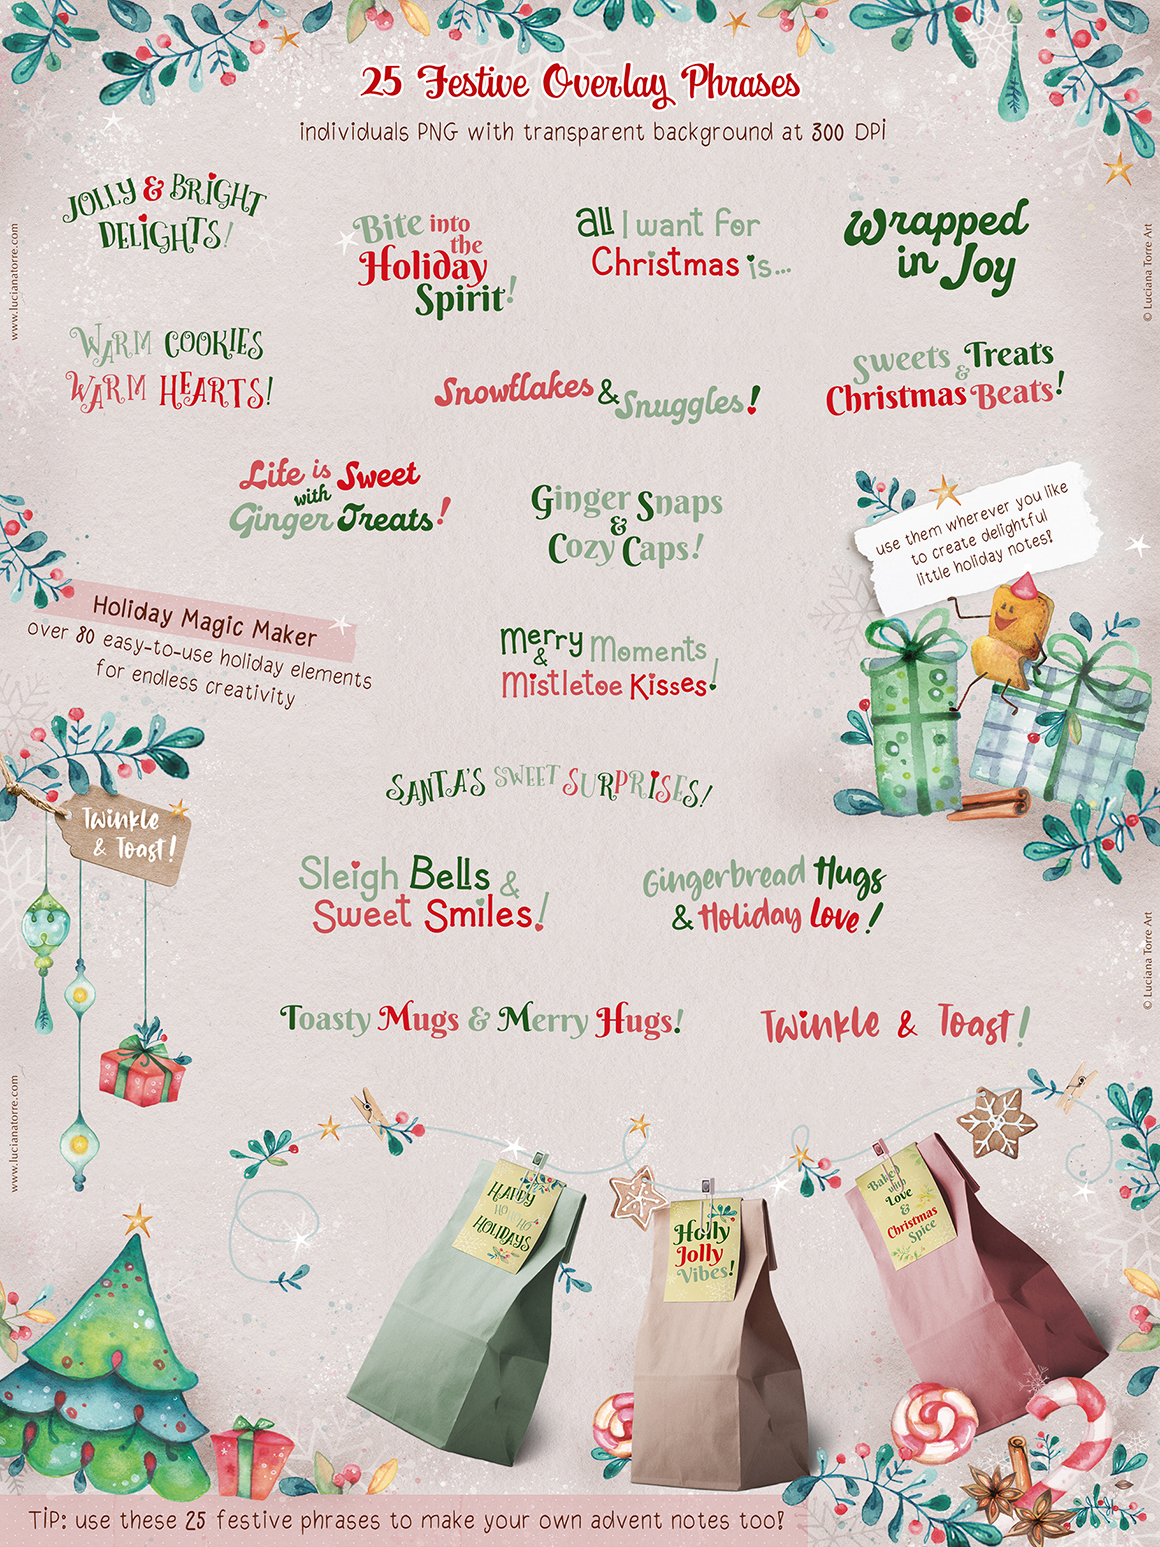 25 Festive Overlay Phrases
individuals PNG with transparent background at 300 DPI
JOLLY & BRIGHT
DELIGHTS!
Bite into
the
Holiday
Spirit!
all I want for
Christmas is...
Wrapped
in Joy
www.lucianatorre.com
© Luciana Torre Art
WARM COOKIES
WARM HEARTS!
Snowflakes & Snuggles!
Sweets & Treats
Christmas Beats!
Life is Sweet
with
Ginger Treats!
Ginger Snaps
&
Cozy Caps!
use them wherever you like
to create delightful
little holiday notes!
Holiday Magic Maker
over 80 easy-to-use holiday elements
for endless creativity
Merry Moments
&
Mistletoe Kisses!
SANTA'S SWEET SURPRISES!
Twinkle
& Toast!
Sleigh Bells &
Sweet Smiles!
Gingerbread Hugs
& Holiday Love!
© Luciana Torre Art
Toasty Mugs & Merry Hugs!
Twinkle & Toast!
www.lucianatorre.com
HAPPY
HO HO HO
HOLIDAYS
Holly
Jolly
Vibes!
Baked
with
Love
&
Christmas
Spice
TIP: use these 25 festive phrases to make your own advent notes too!